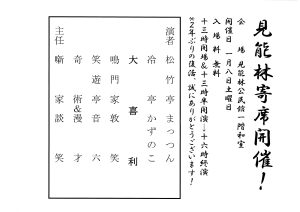 見能林寄席開催！
会　場　見能林公民館一階和室
開催日　一月八日土曜日
入場料　無料
十三時開場＆十三時半開演→十六時終演
※２年ぶりの復活、誠にありがとうございます！
演者　松竹亭まっつん
冷亭かずのこ
大喜利
鳴門家敦笑
笑遊亭音六
奇術＆漫才
主任　噺家談笑